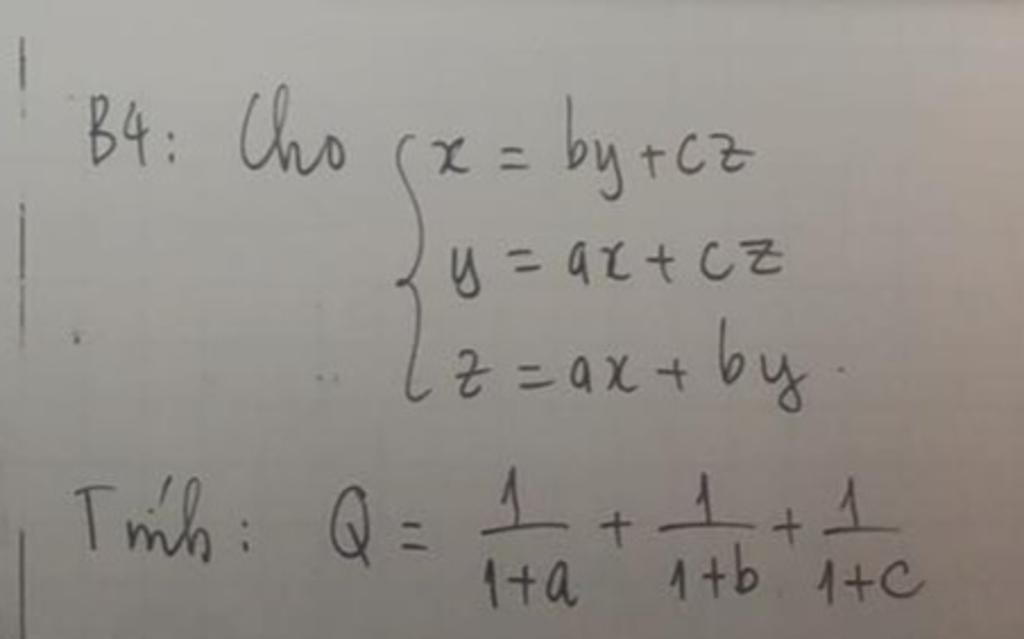 B4: Cho { x = by + cz
y = ax + cz
z = ax + by.
Tính: Q = 1/(1+a) + 1/(1+b) + 1/(1+c)